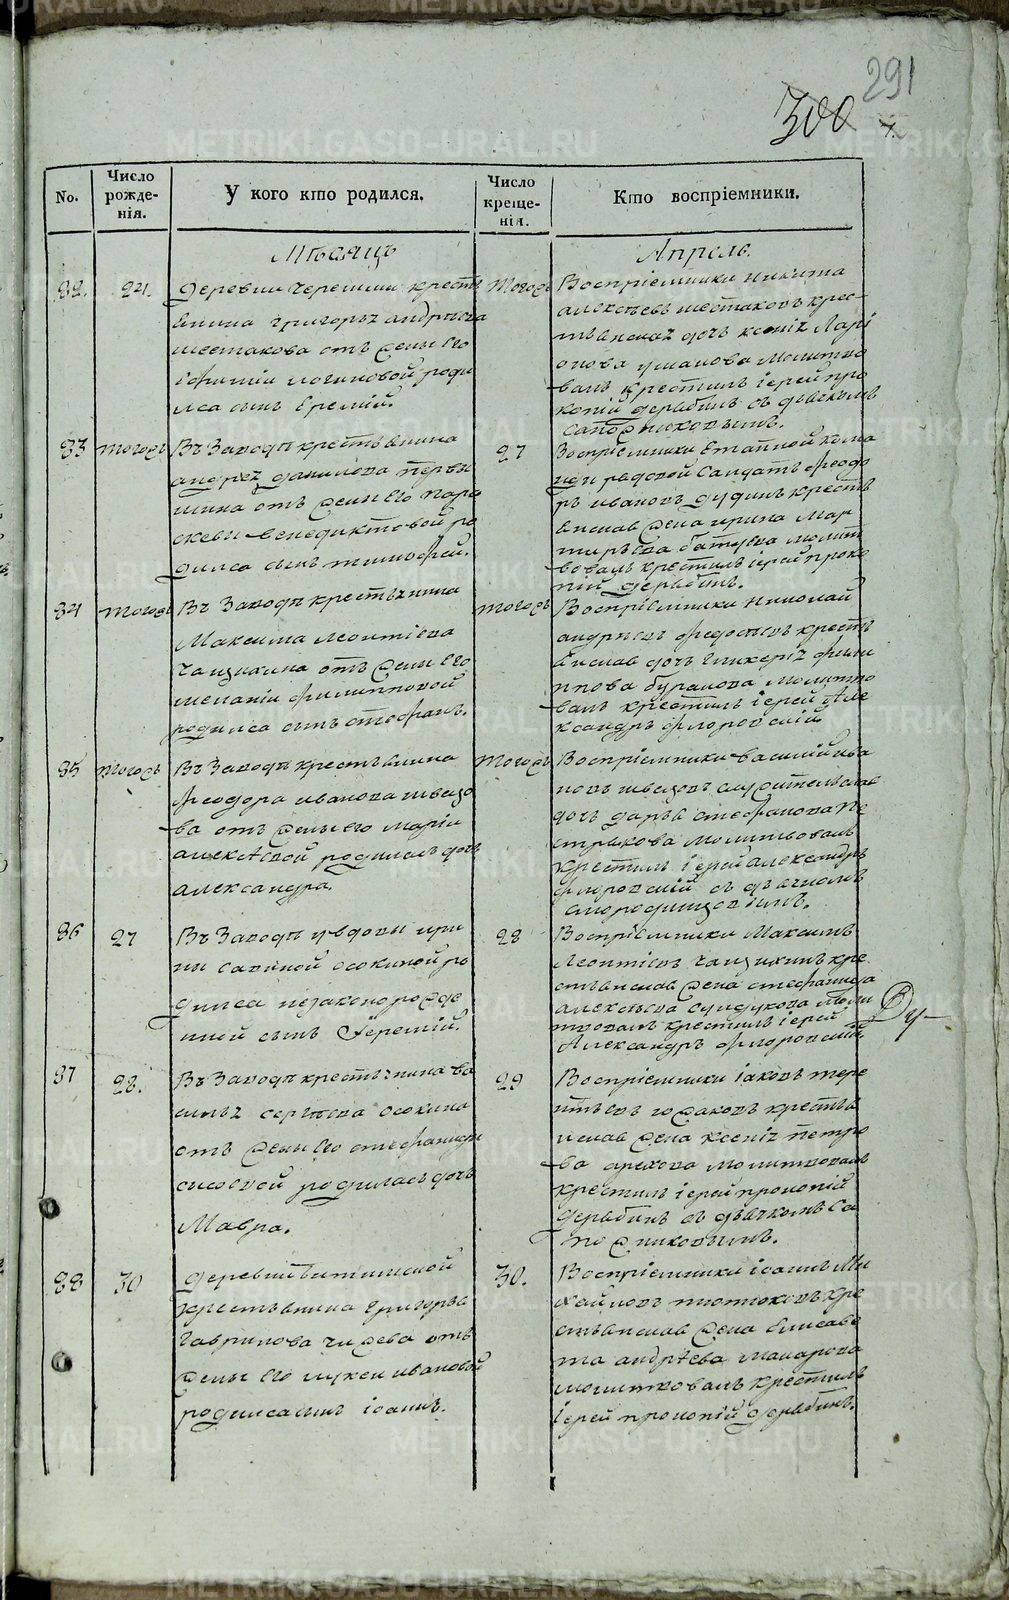 291
300
No.
Число рожде-нія.
У кого кто родился.
Число креще-нія.
Кто воспріемники.
Мѣсяцъ
Апрель.
82. 24.
деревни черемши крестъ
янина григорья андреева
шестакова отъ жены его
логиновой роди
лса сынъ Еремѣй.
Тогожъ
Воспріемники никита
алексѣевъ шестаковъ крес-
тьянская дочь ксенія Лари
онова ушакова молитво
валъ крестилъ іерей про
копій дерябинъ съ дьячкомъ
сапожниковымъ.
83 тогожъ
Въ Заводѣ крестьянина
андрея данилова первы
шина отъ жены его пара
скевы венедиктовой ро
дился сынъ тимофей.
27
Воспріемники Етапной кома
нди рядовой Салдатъ феодо
ръ ивановъ дудинъ крестъ
янская жена ирина мар
тирьева батуева молит
вовалъ крестилъ іерей проко
пій дерябинъ.
84 тогожъ
Въ Заводѣ крестьянина
Максима леонтіева
чащихина отъ жены его
меланіи филипповой
родился сынъ стефанъ.
тогожъ
Воспріемники николай
андреевъ федосѣевъ крестъ
янская дочь гликерія фили
ппова буракова молитво
валъ крестилъ іерей Але
ксандръ флоровскій.
85 тогожъ
Въ Заводѣ крестьянина
феодора иванова швецо
ва отъ жены его маріи
алексѣевой родилась дочь
александра.
тогожъ
Воспріемники василій ива
новъ швецовъ служительская
дочь дарья стефанова пе
стрыкова молитвовалъ
крестилъ іерей александръ
флоровскій съ дьячкомъ
смородинцовымъ.
86 27
Въ Заводѣ у вдовы ири
ны савиной осокиной ро
дился незаконорожде
нной сынъ Іеремій.
28
Воспріемники Максимъ
Леонтіевъ чащихинъ кре
стьянская жена стефанида
алексѣева сундукова моли
твовалъ крестилъ іерей
Александръ флоровскій.
87 28.
Въ Заводѣ крестьянина ва
силья сергѣева осокина
отъ жены его стефаниды
сысоевой родилась дочь
Мавра.
29
Воспріемники іаковъ тере
нтьевъ крестья
нская жена ксенія петро
ва орехова молитвовалъ
крестилъ іерей прокопій
дерябинъ съ дьячкомъ са
пожниковымъ.
88 30
деревни битимской
крестьянина григорья
гаврилова чижева отъ
жены его лукеи ивановой
родился сынъ іоаннъ.
30.
Воспріемники іоаннъ Ми
хайловъ плотниковъ кре
стьянская жена Елисаве
та андрѣева макарова
молитвовалъ крестилъ
іерей прокопій дерябинъ.
METRIKI.GASO-URAL.RU